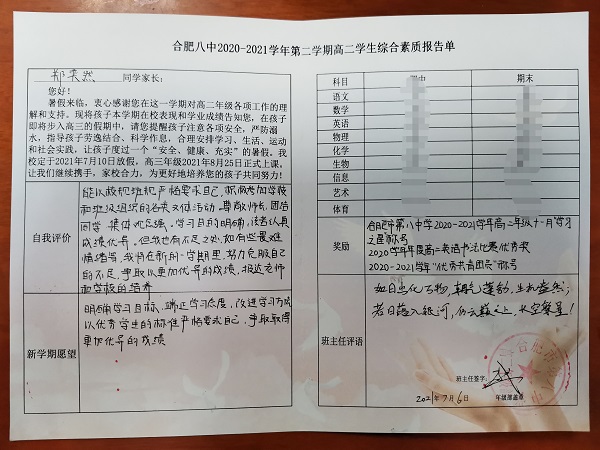 合肥八中2020-2021学年第二学期高二学生综合素质报告单
郑奕然 同学家长:
您好!
暑假来临,衷心感谢您在这一学期对高二年级各项工作的理
解和支持。现将孩子本学期在校表现和学业成绩告知您,在孩子
即将步入高三的假期中,请您提醒孩子注意各项安全,严防溺
水,指导孩子劳逸结合、科学作息,合理安排学习、生活、运动
和社会实践,让孩子度过一个“安全、健康、充实”的暑假。我
校定于2021年7月10日放假,高三年级2021年8月25日正式上课,
让我们继续携手,家校合力,为更好地培养您的孩子共同努力!
自我评价
能以校规班规严格要求自己,积极参加学校
和班级组织的各类文体活动。尊敬师长,团结
同学,集体观念强。学习目的明确,读书认真
成绩优异。但我也有不足之处,如有些畏难
情绪等,我将在新的一学期里,努力克服自己
的不足,争取以更加优异的成绩,报达老师
和学校的培养
新学期愿望
明确学习目标,端正学习态度,改进学习方式
以优秀学生的标准严格要求自己,争取取得
更加优异的成绩
科目 期中 期末
语文
数学
英语
物理
化学
生物
信息
艺术
体育
奖励
合肥市第八中学2020-2021学年高二年级十一月“学习
之星”称号
2020学年度高二英语书法比赛优秀奖
2020-2021学年“优秀共青团员”称号
班主任评语
如日出化万物,朝气蓬勃,生机盎然;
若日落入银河,仍云巅之上,长空繁星!
班主任签字:
2021年7月6日 年级部盖章